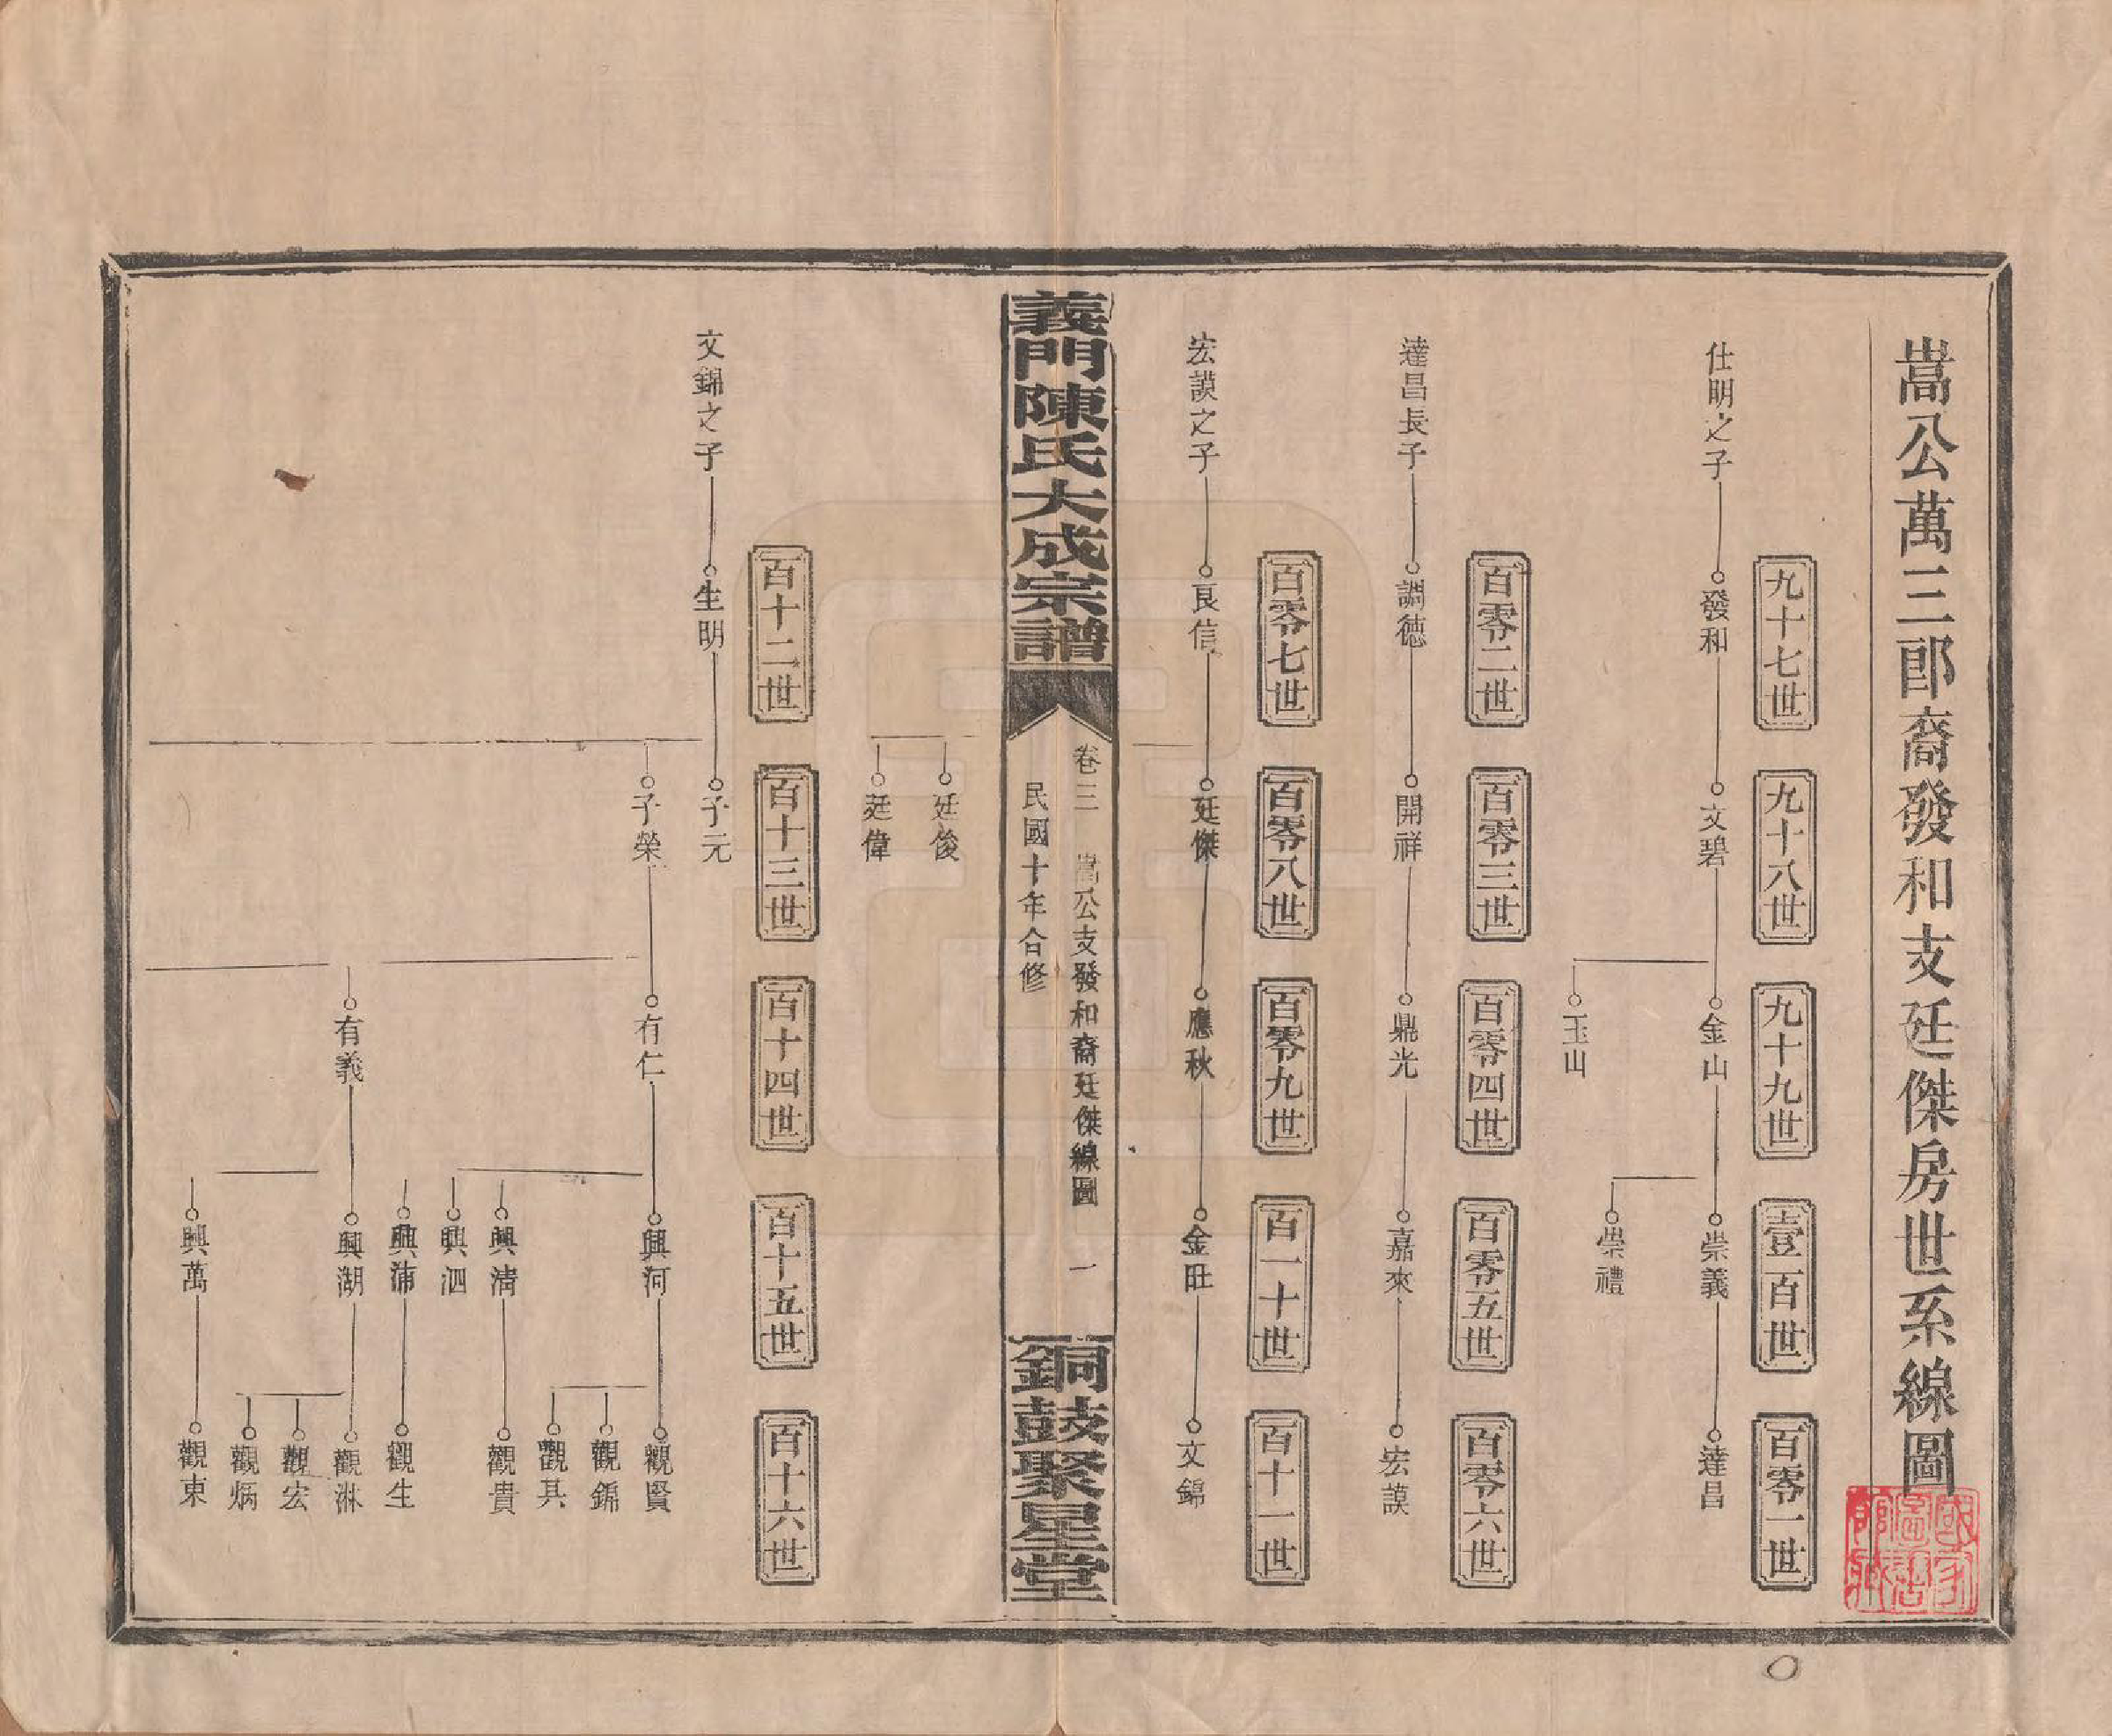 嵩公萬三郎裔發和支廷傑房世系線圖
九十七世
九十八世
九十九世
壹百世
百零一世
仕明之子
發和
文碧
金山
崇義
達昌
玉山
崇禮
百零二世
百零三世
百零四世
百零五世
百零六世
達昌長子
調德
開祥
鼎光
嘉來
宏謨
百零七世
百零八世
百零九世
百一十世
百十一世
宏謨之子
良信
廷傑
應秋
金旺
文錦
義門陳氏大成宗譜
卷三 嵩公支發和裔廷傑線圖 一
民國十年合修
銅鼓聚星堂
廷俊
廷偉
百十二世
百十三世
百十四世
百十五世
百十六世
文錦之子
生明
子元
子榮
有仁
興河
觀賢
觀錦
觀其
興清
觀貴
興泗
興浦
觀生
有義
興湖
觀淋
觀宏
觀炳
興萬
觀東
國家圖書館藏